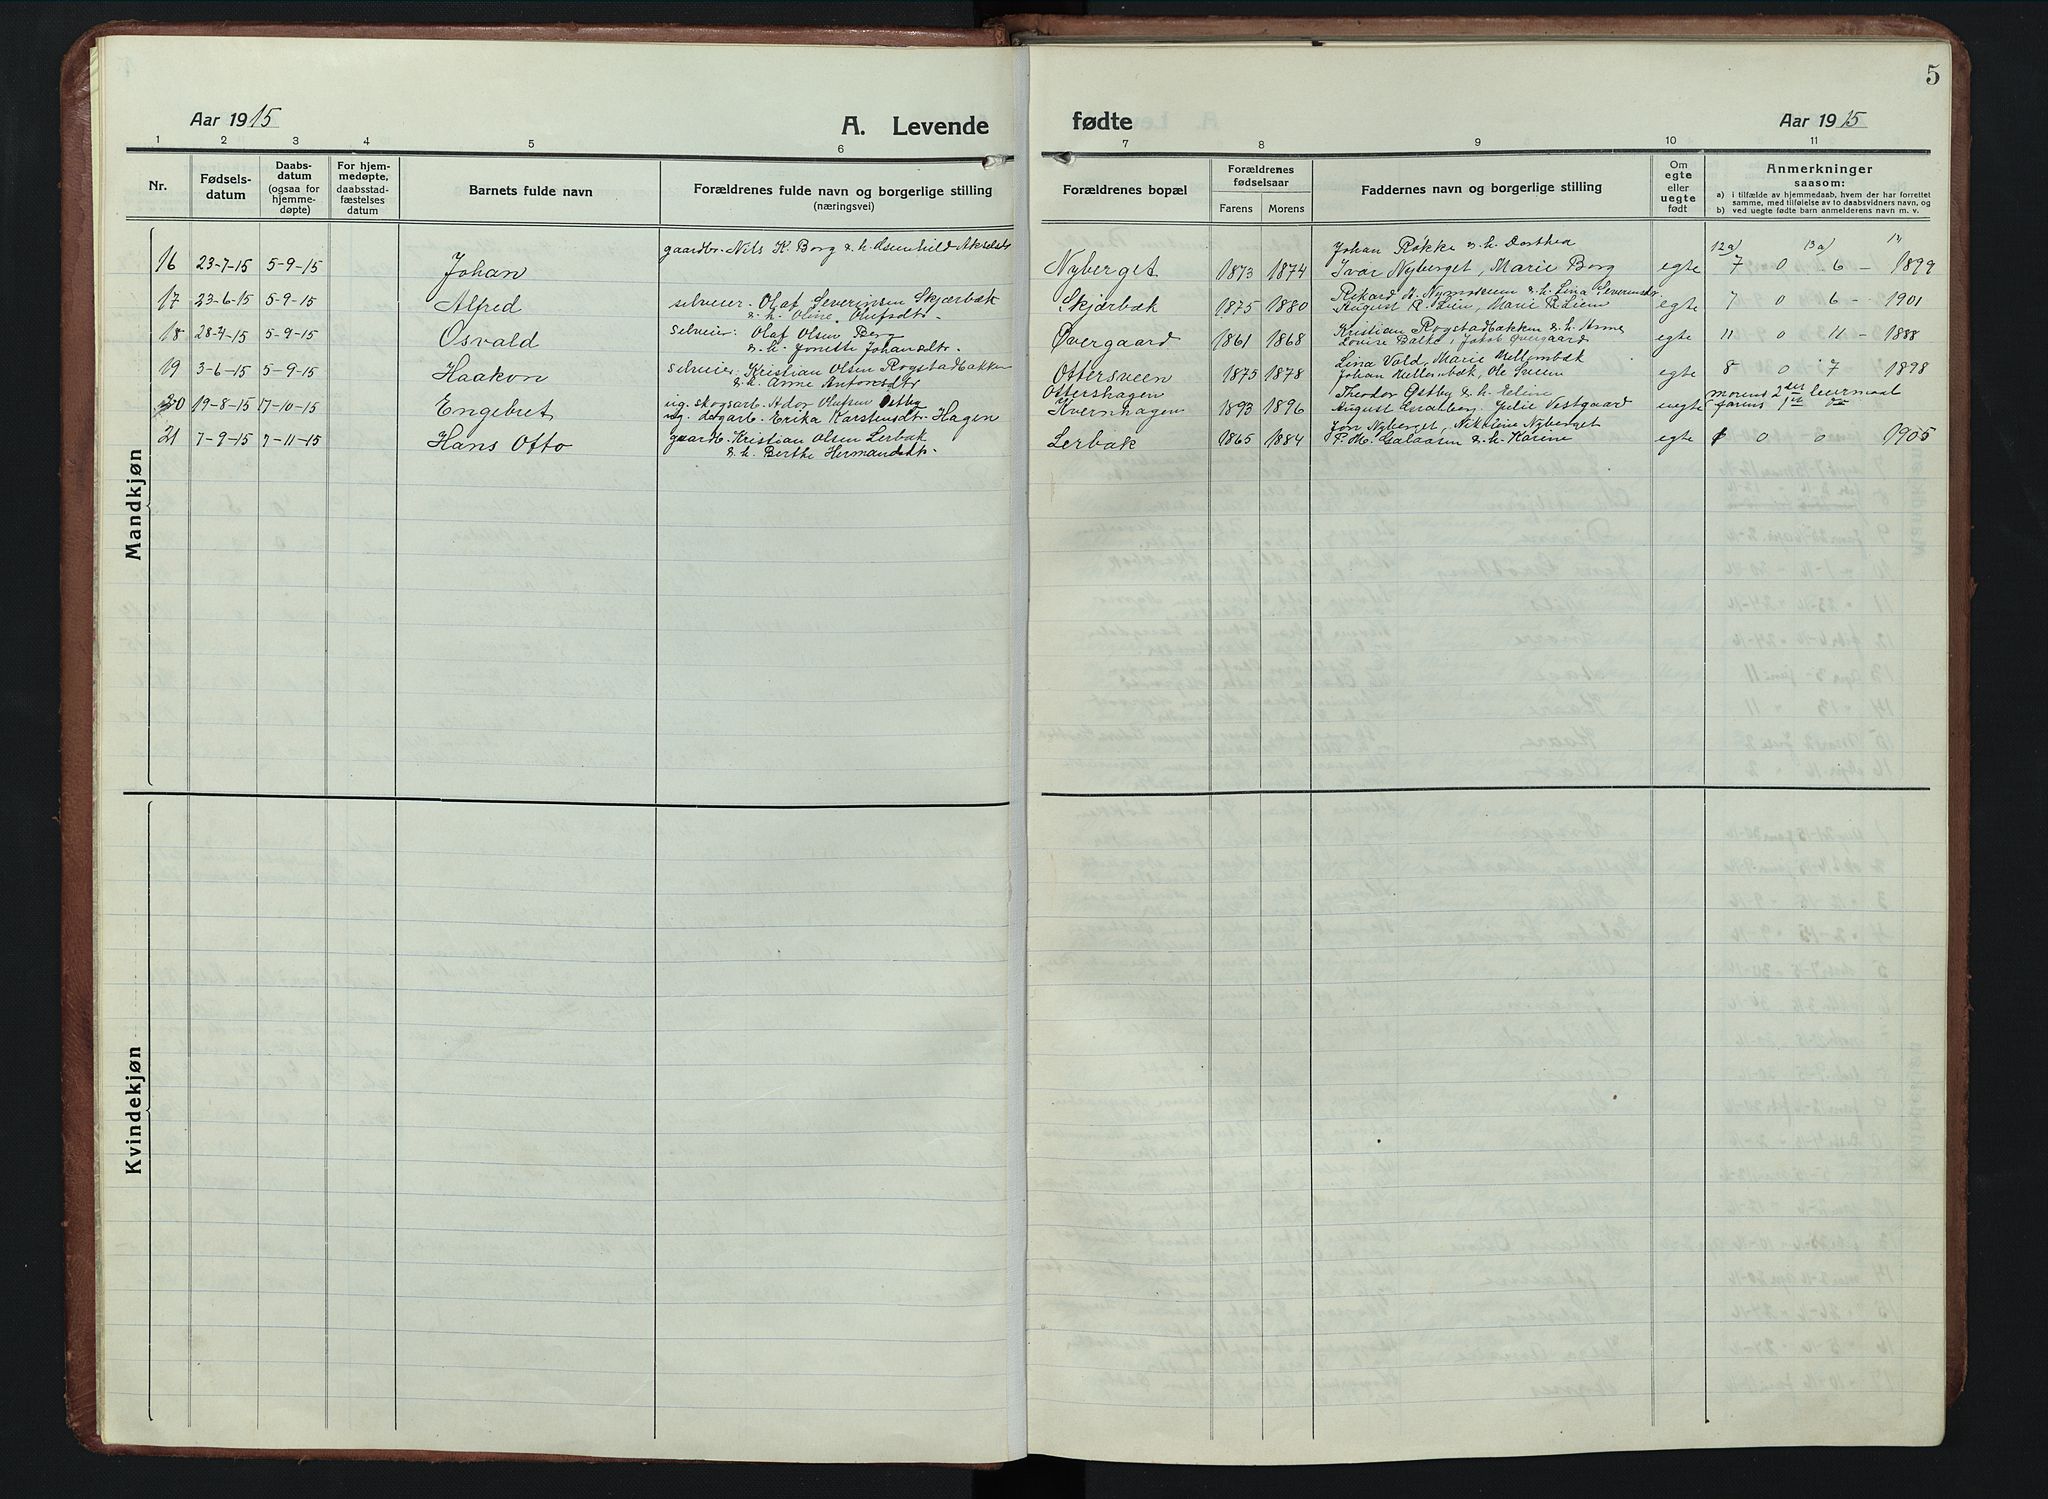 5
Aar 1915
A. Levende
fødte
Aar 1915
1 2 3 4 5 6 7 8 9 10 11
Nr.
Fødselsdatum
Daabsdatum (ogsaa for hjemmedøpte)
For hjemmedøpte, daabsstadfæstelses datum
Barnets fulde navn
Forældrenes fulde navn og borgerlige stilling (næringsvei)
Forældrenes bopæl
Forældrenes fødselsaar
Farens Morens
Faddernes navn og borgerlige stilling
Om egte eller uegte født
Anmerkninger saasom:
a) i tilfælde av hjemmedaab, hvem der har forrettet samme, med tilføielse av to daabsvidners navn, og
b) ved uegte fødte barn anmelderens navn m. v.
Mandkjøn
gaardbr. Nils K. Borg & h.
Johan Røkke & h. Dorthea
12a) 13a)
16 23-7-15 5-9-15 Johan Nyberget 1873 1874 Ivar Nyberget, Marie Borg egte 7 0 6 - 1899
17 23-6-15 5-9-15 Alfred selveier. Olaf Severinsen Skjærbæk Skjærbæk 1875 1880 Rikard & h. Lina Severinsdtr egte 7 0 6 - 1901
& h. Oline Olufsdtr. August R. Lien, Marie R. Lien
18 28-4-15 5-9-15 Osvald selveier: Olaf Olsen Berg Øvergaard 1861 1868 Kristian Rogstadbakken & h. Anne egte 11 0 11 - 1888
& h. Jonette Johansdtr. Lovise Balke, Jakob Øvergaard
19 3-6-15 5-9-15 Haakon selveier. Kristian Olsen Rogstadbakken Ottersveen 1875 1878 Lina Vold, Marie Mellembæk egte 8 0 7 1898
& h. Anne Antonsdtr Johan Mellembæk, Ole Sveen
20 19-8-15 17-10-15 Engebret ug. skogsarb. Ador Olufsen Østby Ottershagen 1893 1896 Theodor Østby & h. Eline uegte morens 2det leiermaal
Erika Karstensdtr. Hagen Kvernhagen August Lindberg, Julie Vestgaard farens 1st do
21 7-9-15 7-11-15 Hans Otto gaardb. Kristian Olsen Lerbak Lerbak 1865 1884 Jon Nyberget, Nikkline Nyberget egte 1 0 0 1905
& h. Berthe Hermansdtr. P. M. Galaasen & h. Karine
Kvindekjøn